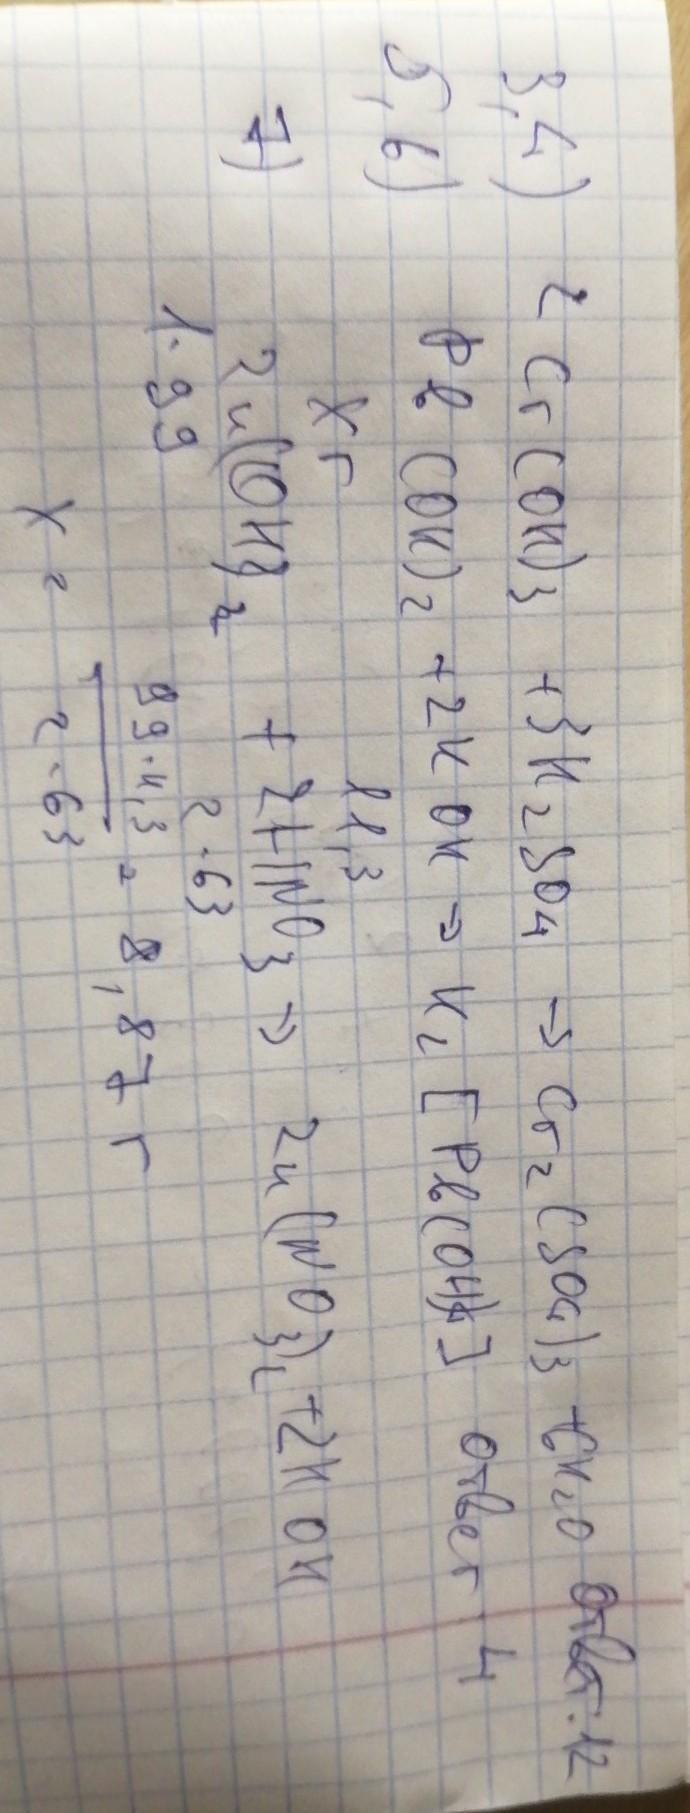 3,4) 2Cr(OH)3 + 3H2SO4 → Cr2(SO4)3 + 6H2O Ответ: 12
5,6) Pb(OH)2 + 2KOH → K2[Pb(OH)4] Ответ 4
Xг 11,3
7) Zn(OH)2 + 2HNO3 → Zn(NO3)2 + 2HOH
1·99 2·63
X = 99·11,3 / 2·63 = 8,87 г